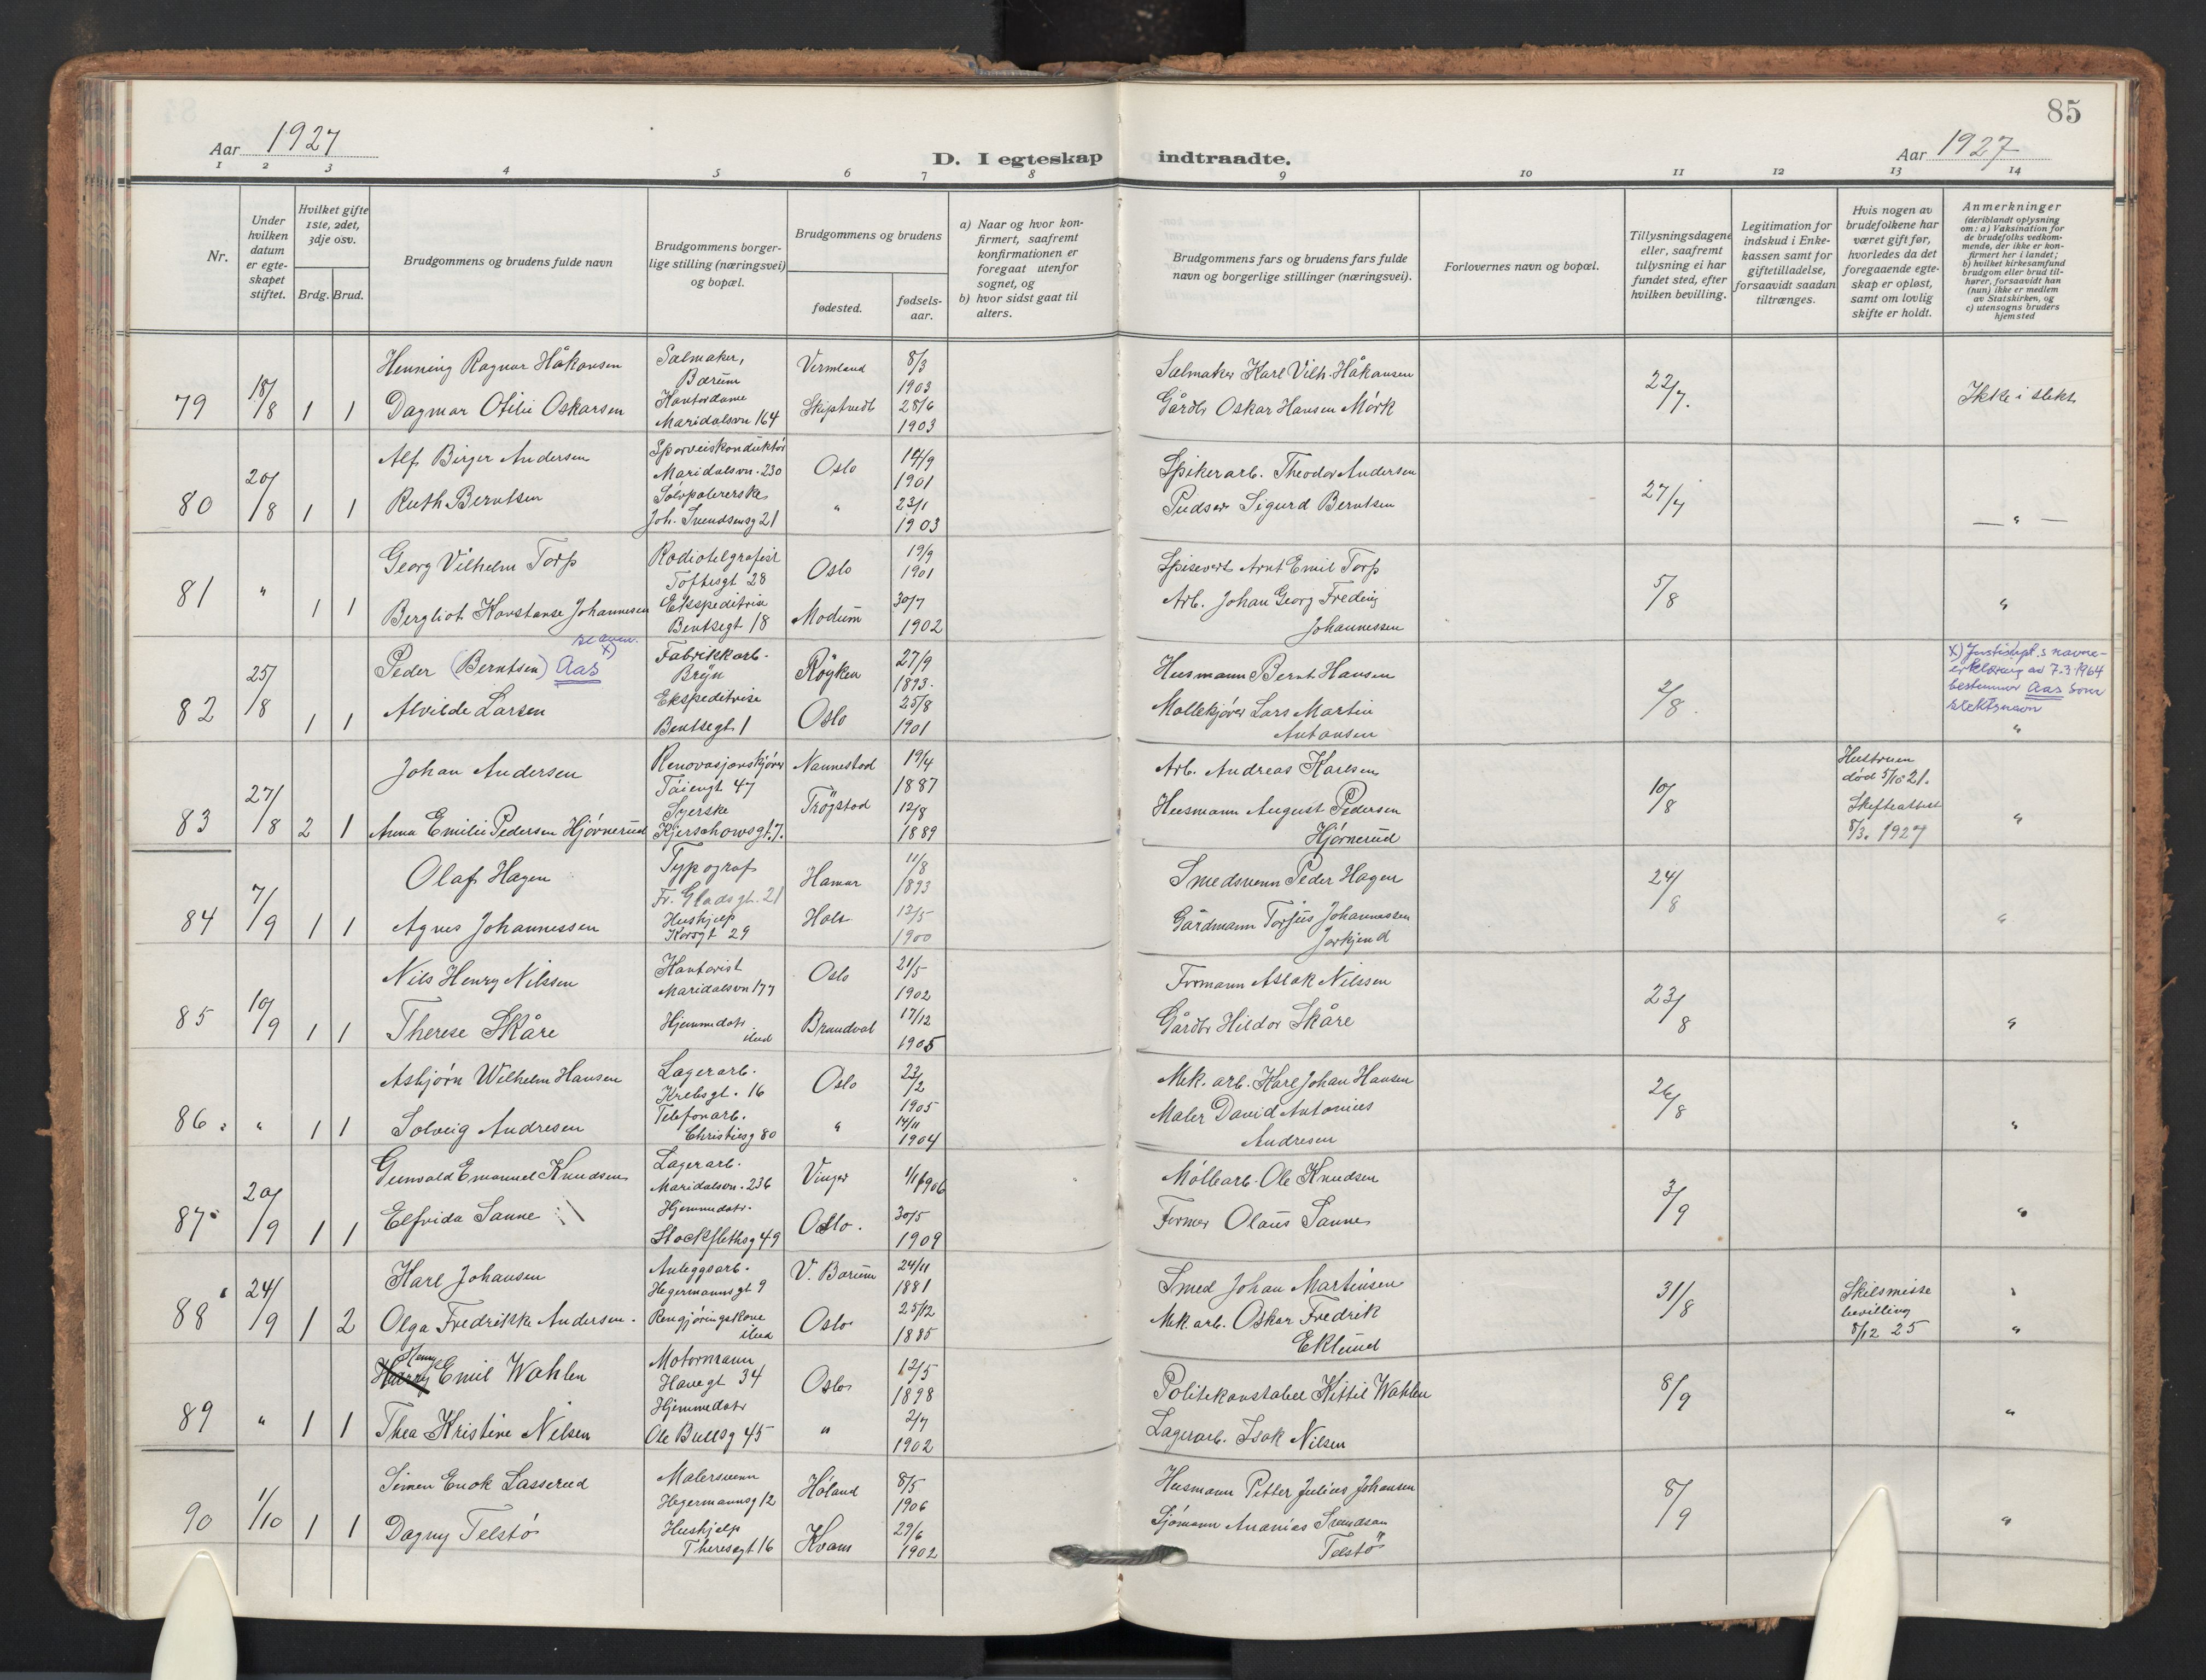 85
Aar 1927
D. I egteskap indtraadte.
Aar 1927
1 2 3 4 5 6 7 8 9 10 11 12 13 14
Nr.
Under hvilken datum er egteskapet stiftet.
Hvilket gifte 1ste, 2det, 3dje osv.
Brdg. Brud.
Brudgommens og brudens fulde navn
Brudgommens borgerlige stilling (næringsvei) og bopæl.
Brudgommens og brudens
fødested.
fødselsaar.
a) Naar og hvor konfirmert, saafremt konfirmationen er foregaat utenfor sognet, og
b) hvor sidst gaat til alters.
Brudgommens fars og brudens fars fulde navn og borgerlige stillinger (næringsvei).
Forlovernes navn og bopæl.
Tillysningsdagene eller, saafremt tillysning ei har fundet sted, efter hvilken bevilling.
Legitimation for indskud i Enkekassen samt for giftetilladelse, forsaavidt saadan tiltrænges.
Hvis nogen av brudefolkene har været gift før, hvorledes da det foregaaende egteskap er opløst, samt om lovlig skifte er holdt.
Anmerkninger
(deriblandt oplysning om: a) Vaksination for de brudefolks vedkommende, der ikke er konfirmert her i landet; b) hvilket kirkesamfund brudgom eller brud tilhører, forsaavidt han (hun) ikke er medlem av Statskirken, og c) utensogns bruders hjemsted
79 18/8 1 1
Henning Ragnar Håkansen
Salmaker, Bærum
Vermland 8/3 1903
Salmaker Karl Vilh. Håkansen
22/7.
Ikke i slekt
Dagmar Otilie Oskarsen
Kontordame Maridalsvn 164
Skiptvedt 28/6 1903
Gårdbr Oskar Hansen Mørk
80 20/8 1 1
Alf Birger Andersen
Sporveiskonduktør Maridalsvn. 230
Oslo 14/9 1901
Spikerarb. Theodor Andersen
27/7
— " —
Ruth Berntsen
Sølvpolererske Joh. Svendsensg 21
" 23/1 1903
Pudser Sigurd Berntsen
81 " 1 1
Georg Vilhelm Torp
Radiotelgrafist Toftesgt 28
Oslo 19/9 1901
Spisevert Arnt Emil Torp
5/8
"
Bergliot Konstanse Johannesen
Ekspeditrise Bentsegt 18
Modum 30/7 1902
Arb. Johan Georg Fredrig Johannessen
82 25/8 1 1
Peder (Berntsen) Aas x)
Fabrikkarb. Bryn
Røyken 27/9 1893.
Husmann Bernt Hansen
2/8.
x) Justisdept.s navneerklæring av 7.3.1964 bestemmer Aas som slektsnavn
"
Alvilde Larsen
Ekspeditrise Bentsegt 1
Oslo 25/8 1901
Møllekjører Lars Martin Antonsen
83 27/8 2 1
Johan Andersen
Renovasjonskjører Tøiengt 47
Nannestad 19/4 1887
Arb. Andreas Karlsen
10/8
Hustruen død 5/10 21. Skifteattest 8/3. 1927
"
Anna Emilie Pedersen Hjørnerud
Syerske Kjerschowsgt. 7.
Trøgstad 12/8 1889
Husmann August Pedersen Hjørnerud
84 7/9 1 1
Olaf Hagen
Typograf Fr. Gladsgt. 21
Hamar 11/8 1893
Smedsvenn Peder Hagen
24/8
"
Agnes Johannessen
Hushjelp Korsgt 29
Holt 12/5 1900
Gårdmann Torjus Johannessen
85 10/9 1 1
Nils Henry Nilssen
Kontorist Maridalsvn 177
Oslo 21/5 1902
Formann Aslak Nilssen
23/8
"
Therese Skåre
Hjemmedatr. ibid
Brandval 17/12 1905
Gårdbr Hildor Skåre
86. " 1 1
Asbjørn Wilhelm Hansen
Lagerarb. Krebsgt. 16
Oslo 23/2 1905
Mek. arb. Karl Johan Hansen
26/8
"
Solveig Andresen
Telefonarb. Christiesg 80
" 14/11 1904
Maler David Antonius Andresen
87. 20/9 1 1
Gunvald Emanuel Knudsen
Lagerarb. Maridalsvn. 236
Vinger 1/1 1906
Møllearb. Ole Knudsen
3/9
"
Elfrida Sanne
Hjemmedatr. Stockflethsg 49
Oslo. 30/5 1909
Former Olaus Sanne
88 24/9 1 2
Karl Johansen
Anleggsarb. Hegermannsgt 9
V. Bærum 24/11 1881
Smed Johan Martinsen
31/8
Skilsmisse bevilling 8/12 25
"
Olga Fredrikke Andersen.
Rengjøringskone ibid
Oslo 25/12 1885
Mek. arb. Oskar Fredrik Eklund
89 " 1 1
Harry Henry Emil Wahlen
Motormann Havegt 34
Oslo 12/5 1898
Politikonstabel Kittil Wahlen
8/9
"
Thea Kristine Nilsen
Hjemmedatr Ole Bullsg 45
" 2/7 1902
Lagerarb. Isak Nilsen
90 1/10 1 1
Simen Enok Lasserud
Malersvenn Hegermannsg 12
Høland 8/5 1906
Husmann Petter Julius Johansen
8/9
"
Dagny Telstø
Hushjelp Theresegt. 16
Kvam 29/6 1902
Sjømann Ananias Svendsen Telstø